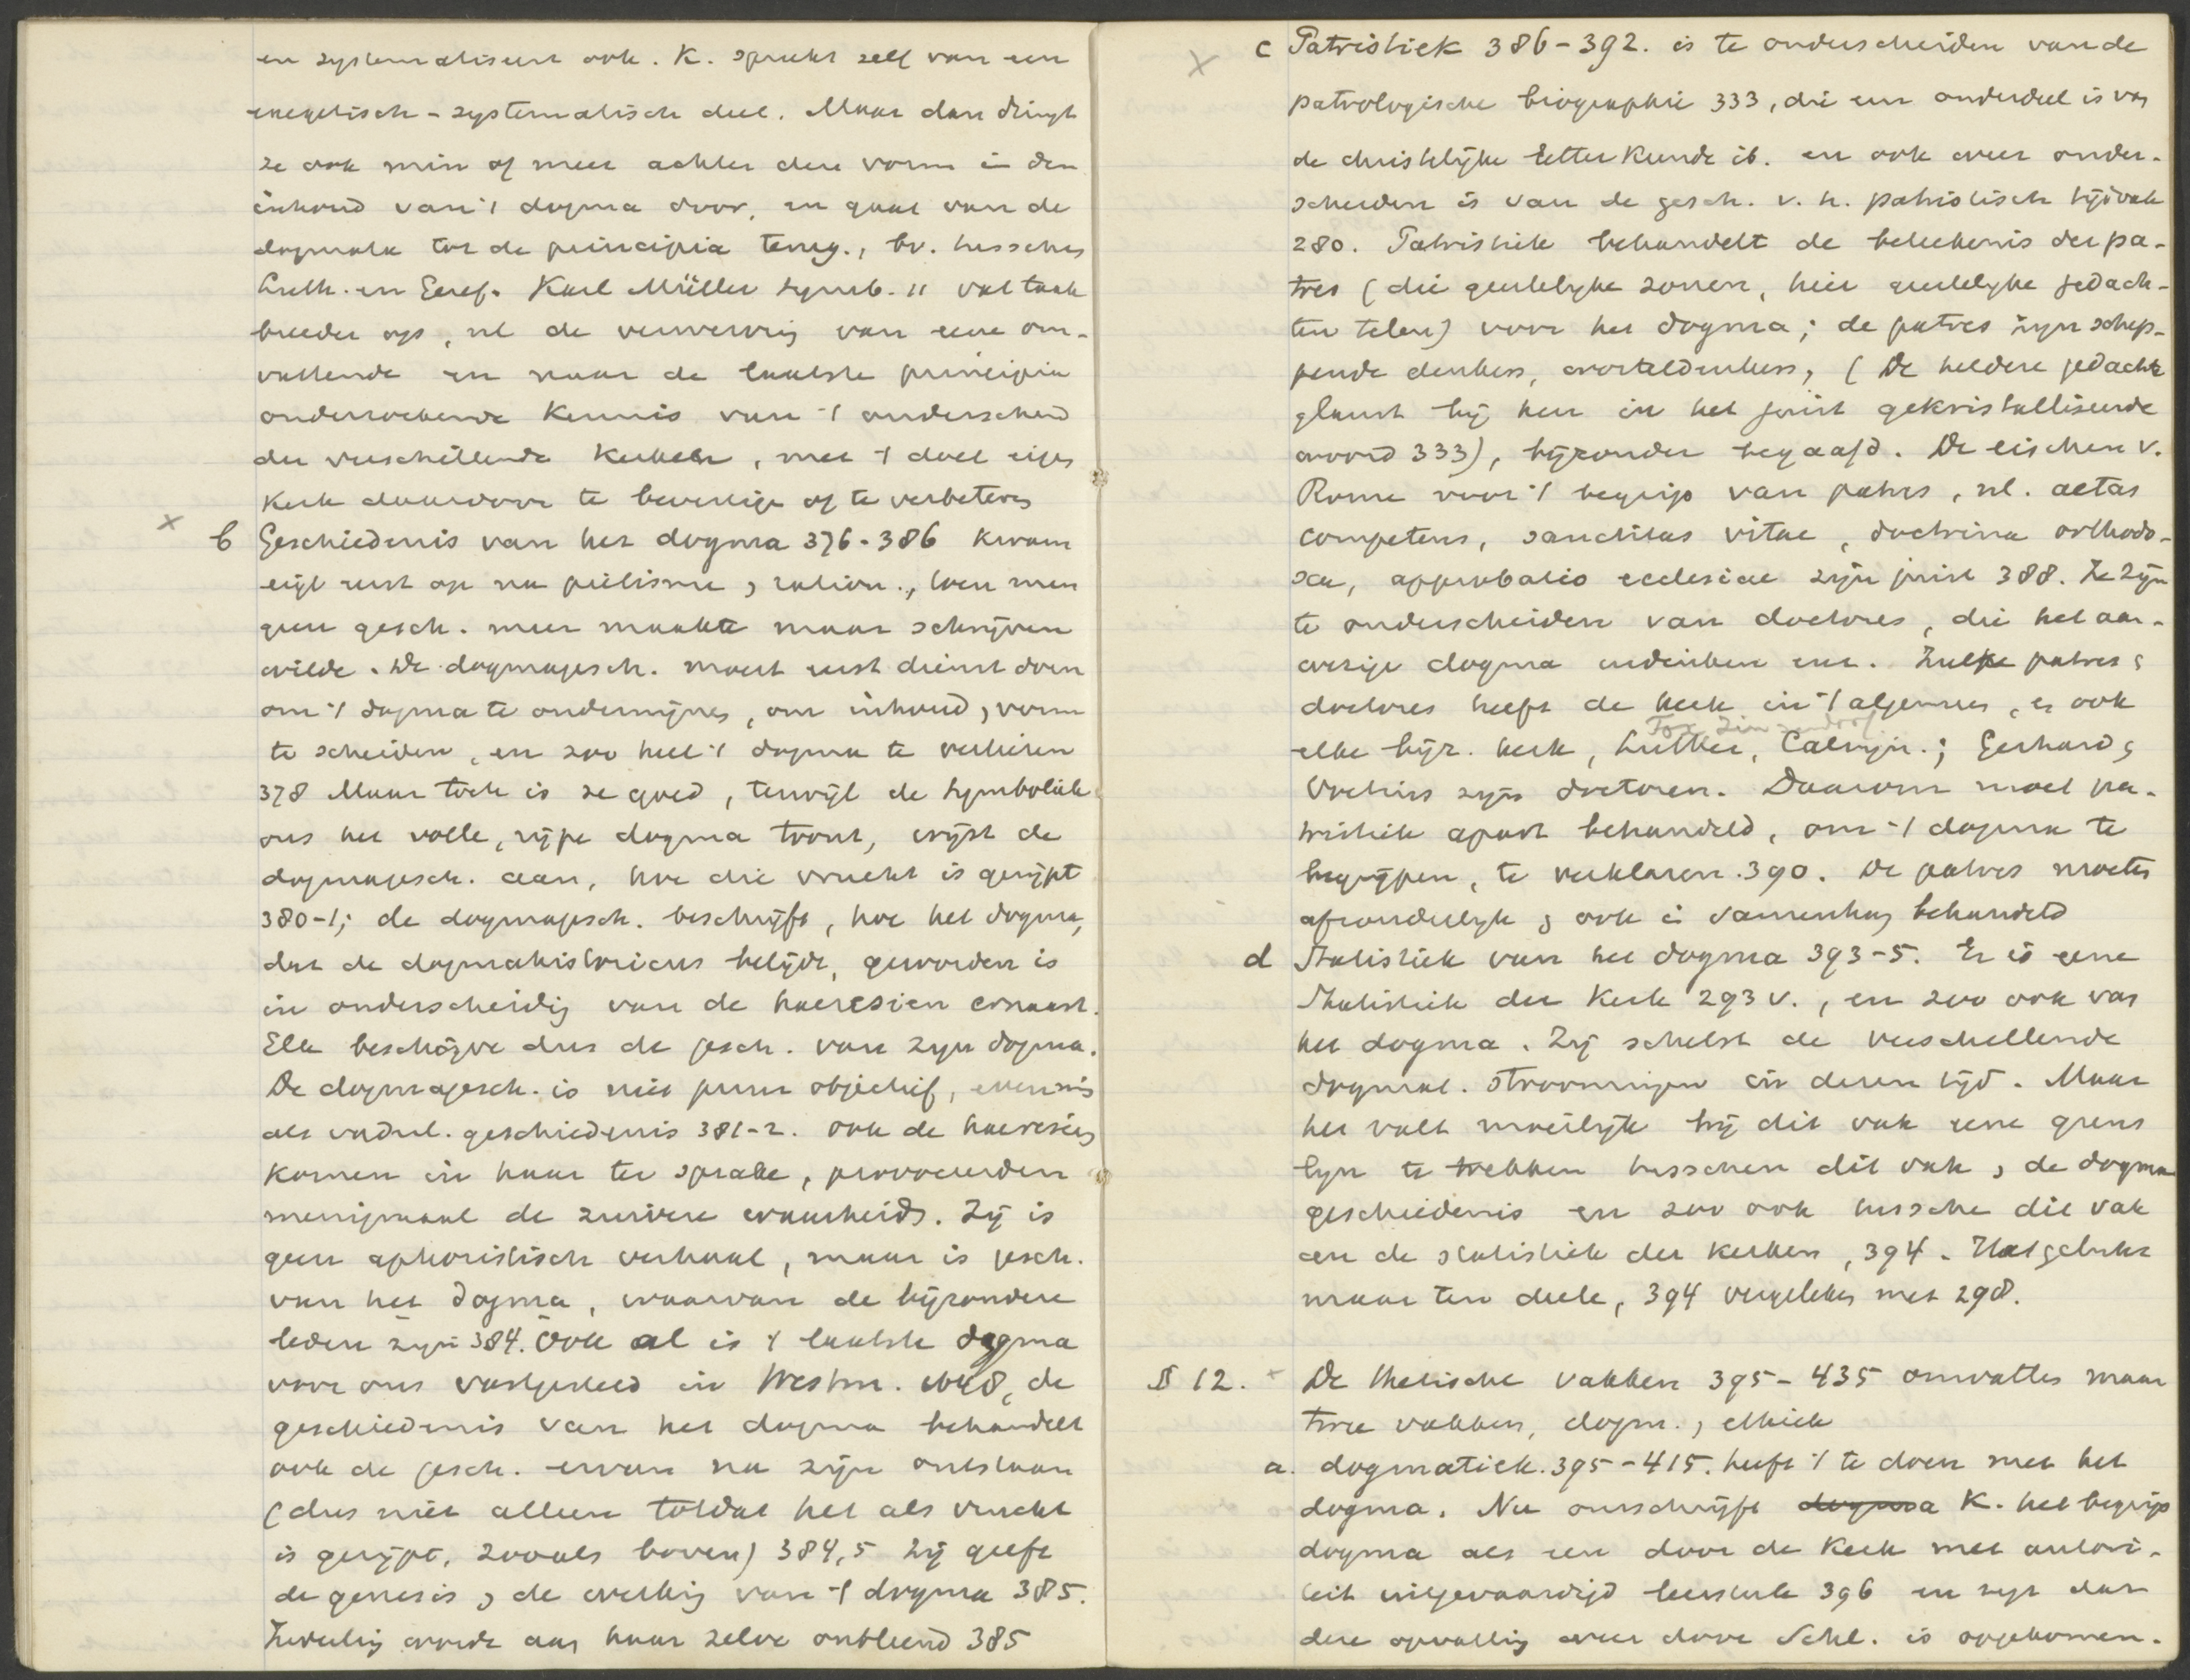 en systematiseert ook. K. spreekt zelf van een
exegetisch-systematisch deel. Maar dan dringt
ze ook min of meer achter dien vorm in den
inhoud van 't dogma door, en gaat van de
dogmata tot de principia terug., bv. tusschen
Luth. en Geref. Karl Müller symb. 11 vat taak
breeder op, nl de verwerving van eene om-
vattende en naar de laatste principia
onderzoekende kennis van 't onderscheid
der verschillende kerken, met 't doel eigen
kerk daardoor te bevestigen of te verbeteren
x b Geschiedenis van het dogma 376-386 kwam
eigl eerst op na pietisme, ration., toen men
geen gesch. meer maakte maar schrijven
wilde. De dogmagesch. moest eerst dienst doen
om 't dogma te ondermijnen, om inhoud, vorm
te scheiden, en zoo heel 't dogma te verliezen
378 Maar toch is ze goed, terwijl de Symboliek
ons het volle, rijpe dogma toont, wijst de
dogmagesch. aan, hoe die vrucht is gerijpt
380-1; de dogmagesch. beschrijft, hoe het dogma,
dat de dogmahistoricus belijdt, geworden is
in onderscheiding van de haeresien ernaast.
Elk beschrijve dus de gesch. van zijn dogma.
De dogmagesch. is niet puur objectief, evenmin
als vaderl. geschiedenis 381-2. ook de haeresien
komen in haar ter sprake, provoceerden
menigmaal de zuivere waarheid. Zij is
geen aphoristisch verhaal, maar is gesch.
van het dogma, waarvan de bijzondere
leden zijn 384. Ook al is 't laatste dogma
voor ons vastgesteld in Westm. 1648, de
geschiedenis van het dogma behandelt
ook de gesch. ervan na zijn ontstaan
(dus niet alleen totdat het als vrucht
is gerijpt, zooals boven) 384,5 Zij geeft
de genesis, de werking van 't dogma 385.
Indeeling worde aan haar zelve ontleend 385
x c Patristiek 386-392. is te onderscheiden van de
patrologische biographie 333, die een onderdeel is van
de christelijke letterkunde ib. en ook weer onder-
scheiden is van de gesch. v. h. patristisch tijdvak
280. Patristiek behandelt de beteekenis der pa-
tres (die geestelijke zonen, hier geestelijke gedach-
ten telen) voor het dogma; de patres zijn schep-
pende denkers, worteldenkers, (De heldere gedachte
glanst bij hen in het juist gekristalliseerde
woord 333), bijzonder begaafd. De eischen v.
Rome voor 't begrip van patres, nl. aetas
competens, sanctitas vitae, doctrina orthodo-
xa, approbatio ecclesiae zijn juist 388. Ze zijn
te onderscheiden van doctores, die het aan-
wezige dogma indenken enz. Zulke patres,
doctores heeft de kerk in 't algemeen, en ook
Fox, Zinzendorf
elke bijz. kerk, Luther, Calvijn.; Gerhard,
Voetius zijn doctoren. Daarom moet pa-
tristiek apart behandeld, om 't dogma te
begrijpen, te verklaren 390. De patres moeten
afzonderlijk, ook in samenhang behandeld
d Statistiek van het dogma 393-5. Er is eene
Statistiek der Kerk 293 v., en zoo ook van
het dogma. Zij schetst de verschillende
dogmat. stroomingen in deren tijd. Maar
het valt moeilijk bij dit vak eene grens
lijn te trekken tusschen dit vak, de dogma
geschiedenis en zoo ook tussche dit vak
en de statistiek der kerken, 394. Het gelukt
maar ten deele, 394 vergeleken met 298.
§ 12. De thetische vakken 395-435 omvatten maar
twee vakken, dogm., ethiek
a. dogmatiek. 395-415. heeft 't te doen met het
dogma. Nu omschrijft dogma K. het begrip
dogma als een door de Kerk met autori-
teit uitgevaardigd leerstuk 396 en zegt dat
deze opvatting weer door Schl. is opgekomen.